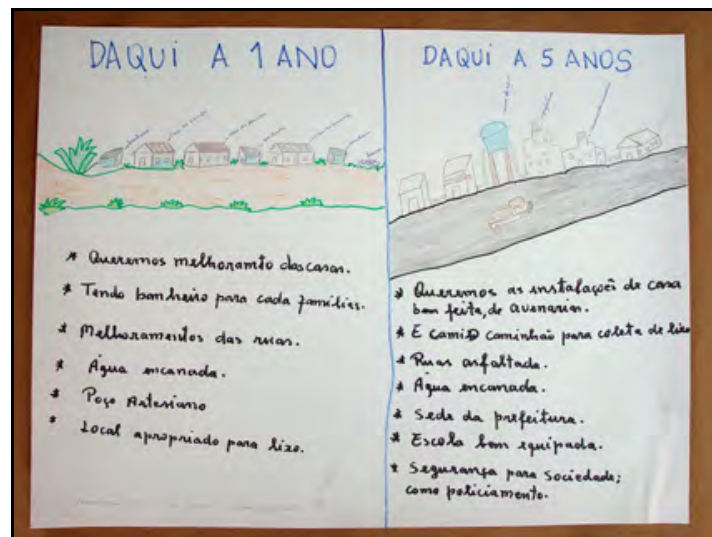 DAQUI A 1 ANO
* Queremos melhoramto das casas.
* Tendo banheiro para cada famílias.
* Melhoramentos das ruas.
* Água encanada.
* Poço Artesiano
* Local apropriado para lixo.
DAQUI A 5 ANOS
* Queremos as instalaçoẽs de casa
bem feita, de avenarian.
* E camiõ caminhão para coleta de lixo
* Ruas asfaltada.
* Água encanada.
* Sede da prefeitura.
* Escola bem equipada.
* Segurança para sociedade;
como policiamento.